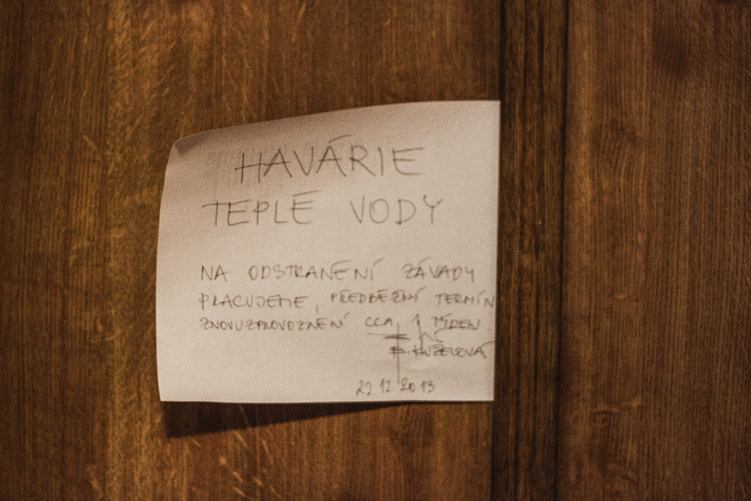 HAVÁRIE
TEPLÉ VODY
NA ODSTRANĚNÍ ZÁVADY
PRACUJEME, PŘEDBĚŽNÍ TERMÍN
ZNOVUZPROVOZNĚNÍ CCA 1 TÝDEN
KUŽELOVÁ
22 12 2013